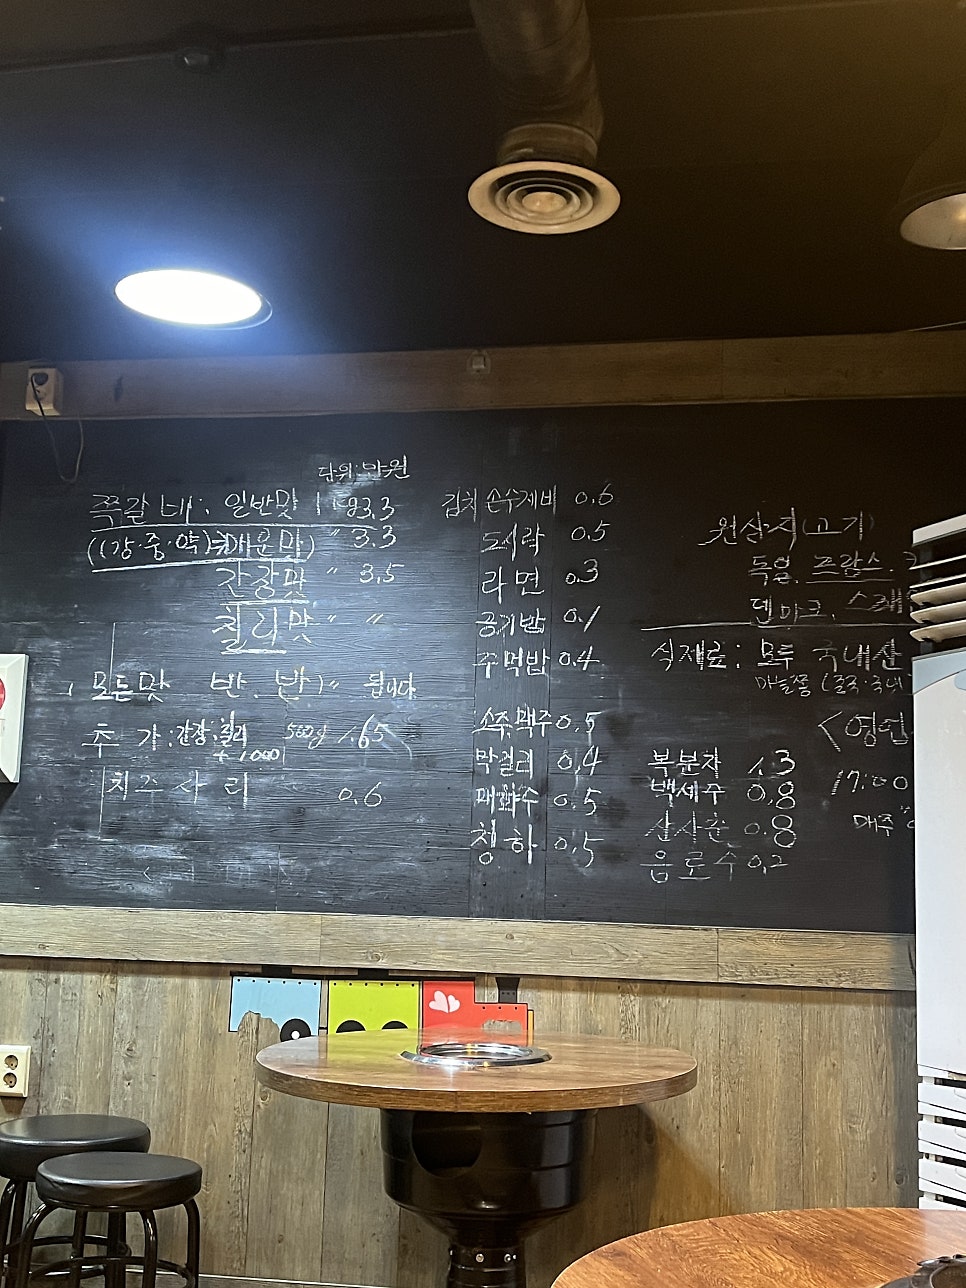 단위: 만원
쪽갈비: 일반맛 1 " 3.3
((강·중·약) 매운맛) " 3.3
간장맛 " 3.5
칠리맛 " "
모든맛 반.반 " 됩니다
추가: 간장,칠리 500g 1.65
1,000
치즈사리 0.6
김치손수제비 0.6
도시락 0.5
라면 0.3
공기밥 0.1
주먹밥 0.4
소주.맥주 0.5
막걸리 0.4
매화수 0.5
청하 0.5
원산지(고기)
독일. 프랑스.
덴마크.
식재료: 모두 국내산
마늘쫑
복분자 1.3
백세주 0.8
산사춘 0.8
음료수 0.2
<영업
17:00
매주